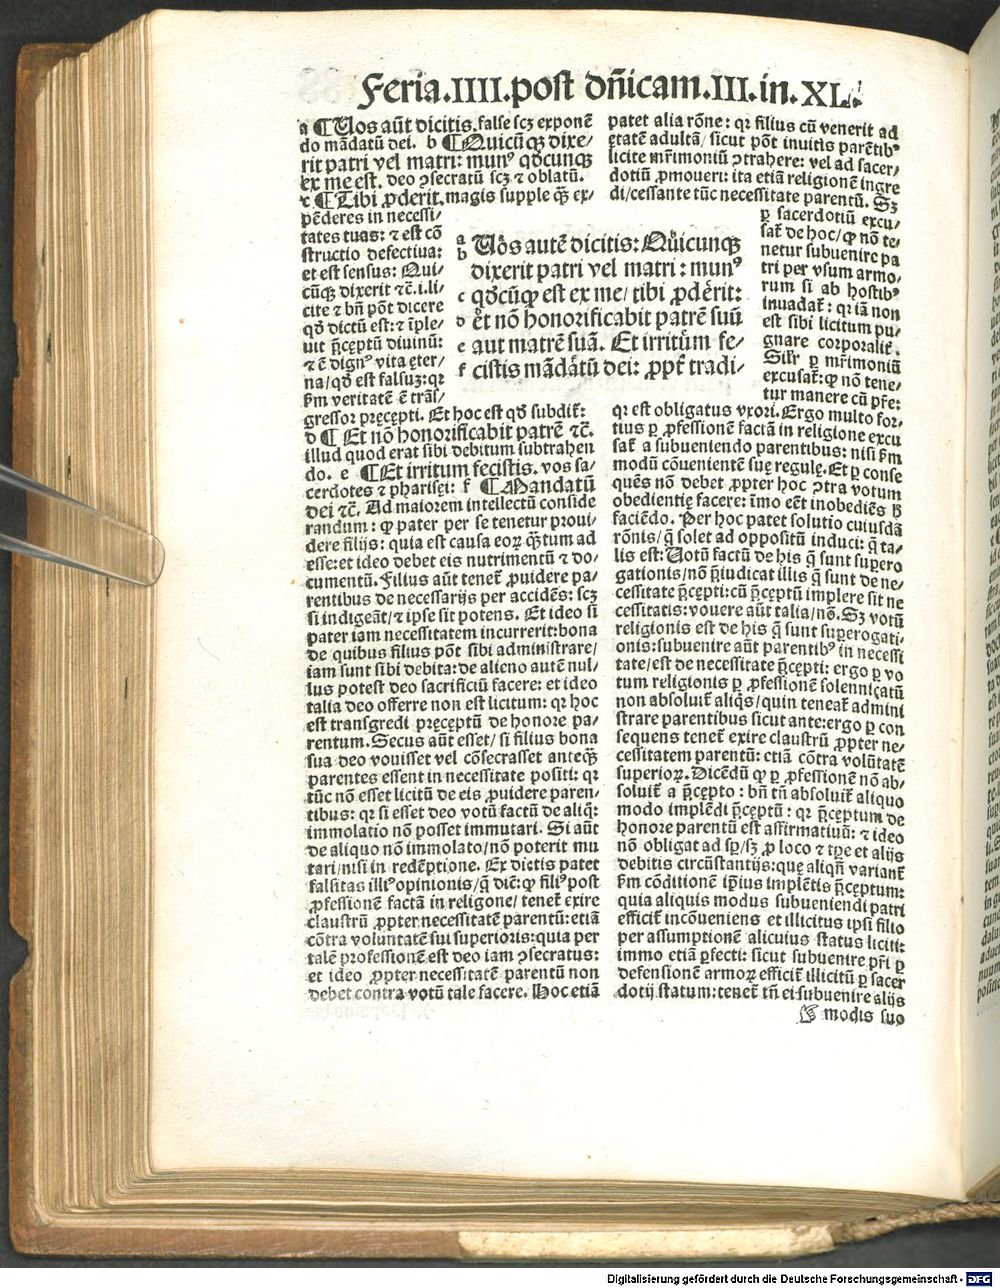 Feria.IIII.post dñicam.III.in.XL.
a ¶ Uos aūt dicitis. false scꝫ exponē
do mādatū dei. b ¶ Quicūqꝫ dixe/
rit patri vel matri: munꝰ qđcunqꝫ
ex me est. deo ɔsecratū scꝫ ⁊ oblatū.
c ¶ Tibi ꝓderit. magis supple qꝫ̄ ex/
pēderes in necessi/
tates tuas: ⁊ est cō
structio defectiua:
et est sensus: Qui/
cūqꝫ dixerit ⁊c̄. i. li/
cite ⁊ bn̄ pōt dicere
qđ dictū est: ⁊ īple/
uit p̄ceptū diuinū:
⁊ ē dignꝰ vita ęter/
na/ qđ est falsuꝫ: qꝛ
ẜm veritatē ē trās/
gressor pręcepti. Et hoc est qđ subdit̄:
d ¶ Et nō honorificabit patrē ⁊c̄.
illud quod erat sibi debitum subtrahen
do. e ¶ Et irritum fecistis. vos sa/
cerdotes ⁊ pharisęi: f ¶ Mandatū
dei ⁊c̄. Ad maiorem intellectū conside
randum: ꝙ pater per se tenetur proui/
dere filijs: quia est causa eoꝝ qꝫ̄tum ad
esse: et ideo debet eis nutrimentū ⁊ do/
cumentū. Filius aūt tenet̄ ꝓuidere pa/
rentibus de necessarijs per accidēs: scꝫ
si indigeāt/ ⁊ ipse sit potens. Et ideo si
pater iam necessitatem incurrerit: bona
de quibus filius pōt sibi administrare/
iam sunt sibi debita: de alieno autē nul/
lus potest deo sacrificiū facere: et ideo
talia deo offerre non est licitum: qꝛ hoc
est transgredi pręceptū de honore pa/
rentum. Secus aūt esset/ si filius bona
sua deo vouisset vel cōsecrasset anteqꝫ̄
parentes essent in necessitate positi: qꝛ
tūc nō esset licitū de eis ꝓuidere paren/
tibus: qꝛ si esset deo votū factū de aliq̄:
immolatio nō posset immutari. Si aūt
de aliquo nō immolato/ nō poterit mu
tari/ nisi in redēptione. Ex dictis patet
falsitas illiꝰ opinionis/ q̄ diē: ꝙ filiꝰ post
ꝓfessionē factā in religone/ tenet̄ exire
claustrū ꝓpter necessitatē parentū: etiā
cōtra voluntatē sui superioris: quia per
talē professionē est deo iam ɔsecratus:
et ideo ꝓpter necessitatē parentū non
debet contra votū tale facere. Hoc etiā
a Uos autē dicitis: Quicunqꝫ
b dixerit patri vel matri: munꝰ
c qđcūqꝫ est ex me/ tibi ꝓderit:
d et nō honorificabit patrē suū
e aut matrē suā. Et irritum fe/
f cistis mādatū dei: ꝓpt̄ tradi/
patet alia rōne: qꝛ filius cū venerit ad
ętatē adultā/ sicut pōt inuitis parētibꝰ
licite mr̄imoniū ɔtrahere: vel ad sacer/
dotiū ꝓmoueri: ita etiā religionē ingre
di/ cessante tūc necessitate parentū. Sꝫ
ꝑ sacerdotiū excu/
sat̄ de hoc/ ꝙ nō te/
netur subuenire pa
tri per vsum armo/
rum si ab hostibꝰ
inuadat̄: qꝛ iā non
est sibi licitum pu/
gnare corporalit̄.
Silr̄ ꝑ mr̄imoniū
excusat̄: ꝙ nō tene/
tur manere cū pr̄e:
qꝛ est obligatus vxori. Ergo multo for/
tius ꝑ ꝓfessionē factā in religione excu
sat̄ a subueniendo parentibus: nisi ẜm
modū cōuenientē suę regulę. Et ꝑ conse
quēs nō debet ꝓpter hoc ɔtra votum
obedientię facere: īmo eēt inobediēs ẜ
faciēdo. Per hoc patet solutio cuiusdā
rōnis/ q̄ solet ad oppositū induci: q̄ ta/
lis est: Uotū factū de his q̄ sunt supero
gationis/ nō p̄iudicat illis q̄ sunt de ne/
cessitate p̄cepti: cū p̄ceptū implere sit ne
cessitatis: vouere aūt talia/ nō. Sꝫ votū
religionis est de his q̄ sunt suꝑerogati/
onis: subuenire aūt parentibꝰ in necessi
tate/ est de necessitate p̄cepti: ergo ꝑ vo
tum religionis ꝑ ꝓfessionē solennizatū
non absoluit̄ aliqs/ quin teneat̄ admini
strare parentibus sicut ante: ergo ꝑ con
sequens tenet̄ exire claustrū ꝓpter ne/
cessitatem parentū: etiā cōtra volūtatē
superioꝝ. Dicēdū ꝙ ꝑ ꝓfessionē nō ab/
soluit̄ a p̄cepto: bn̄ tn̄ absoluit̄ aliquo
modo implēdi p̄ceptū: qꝛ p̄ceptum de
honore parentū est affirmatiuū: ⁊ ideo
nō obligat ad sꝑ/ sꝫ ꝓ loco ⁊ tp̄e et alijs
debitis circūstantijs: quę aliqn̄ variant̄
ẜm cōditionē ip̄ius implētis p̄ceptum:
quia aliquis modus subueniendi patri
efficit̄ incōueniens et illicitus ipsi filio
per assumptionē alicuius status liciti:
immo etiā ꝑfecti: sicut subuenire pr̄i ꝑ
defensionē armoꝝ efficit̄ illicitū ꝑ sacer
dotij statum: tenet̄ tn̄ ei subuenire alijs
☞ modis suo
Digitalisierung gefördert durch die Deutsche Forschungsgemeinschaft - DFG